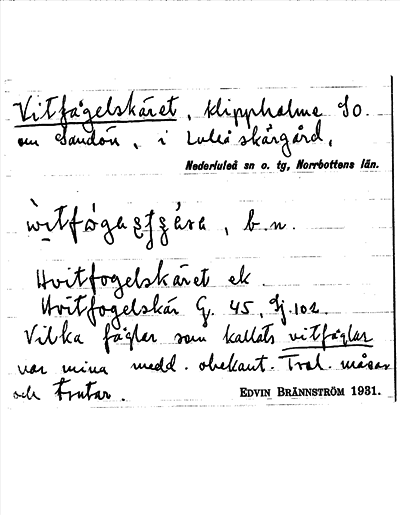 Vitfågelskäret, klippholme SO.
om Sandön, i Luleå skärgård,
Nederluleå sn o. tg, Norrbottens län.
b.n.
Hvitfogelskäret ek.
Hvitfogelskär G. 45, Sj. 102.
Vilka fåglar som kallats vitfåglar
var mina medd. obekant. Trol. måsar
och trutar.
EDVIN BRÄNNSTRÖM 1931.